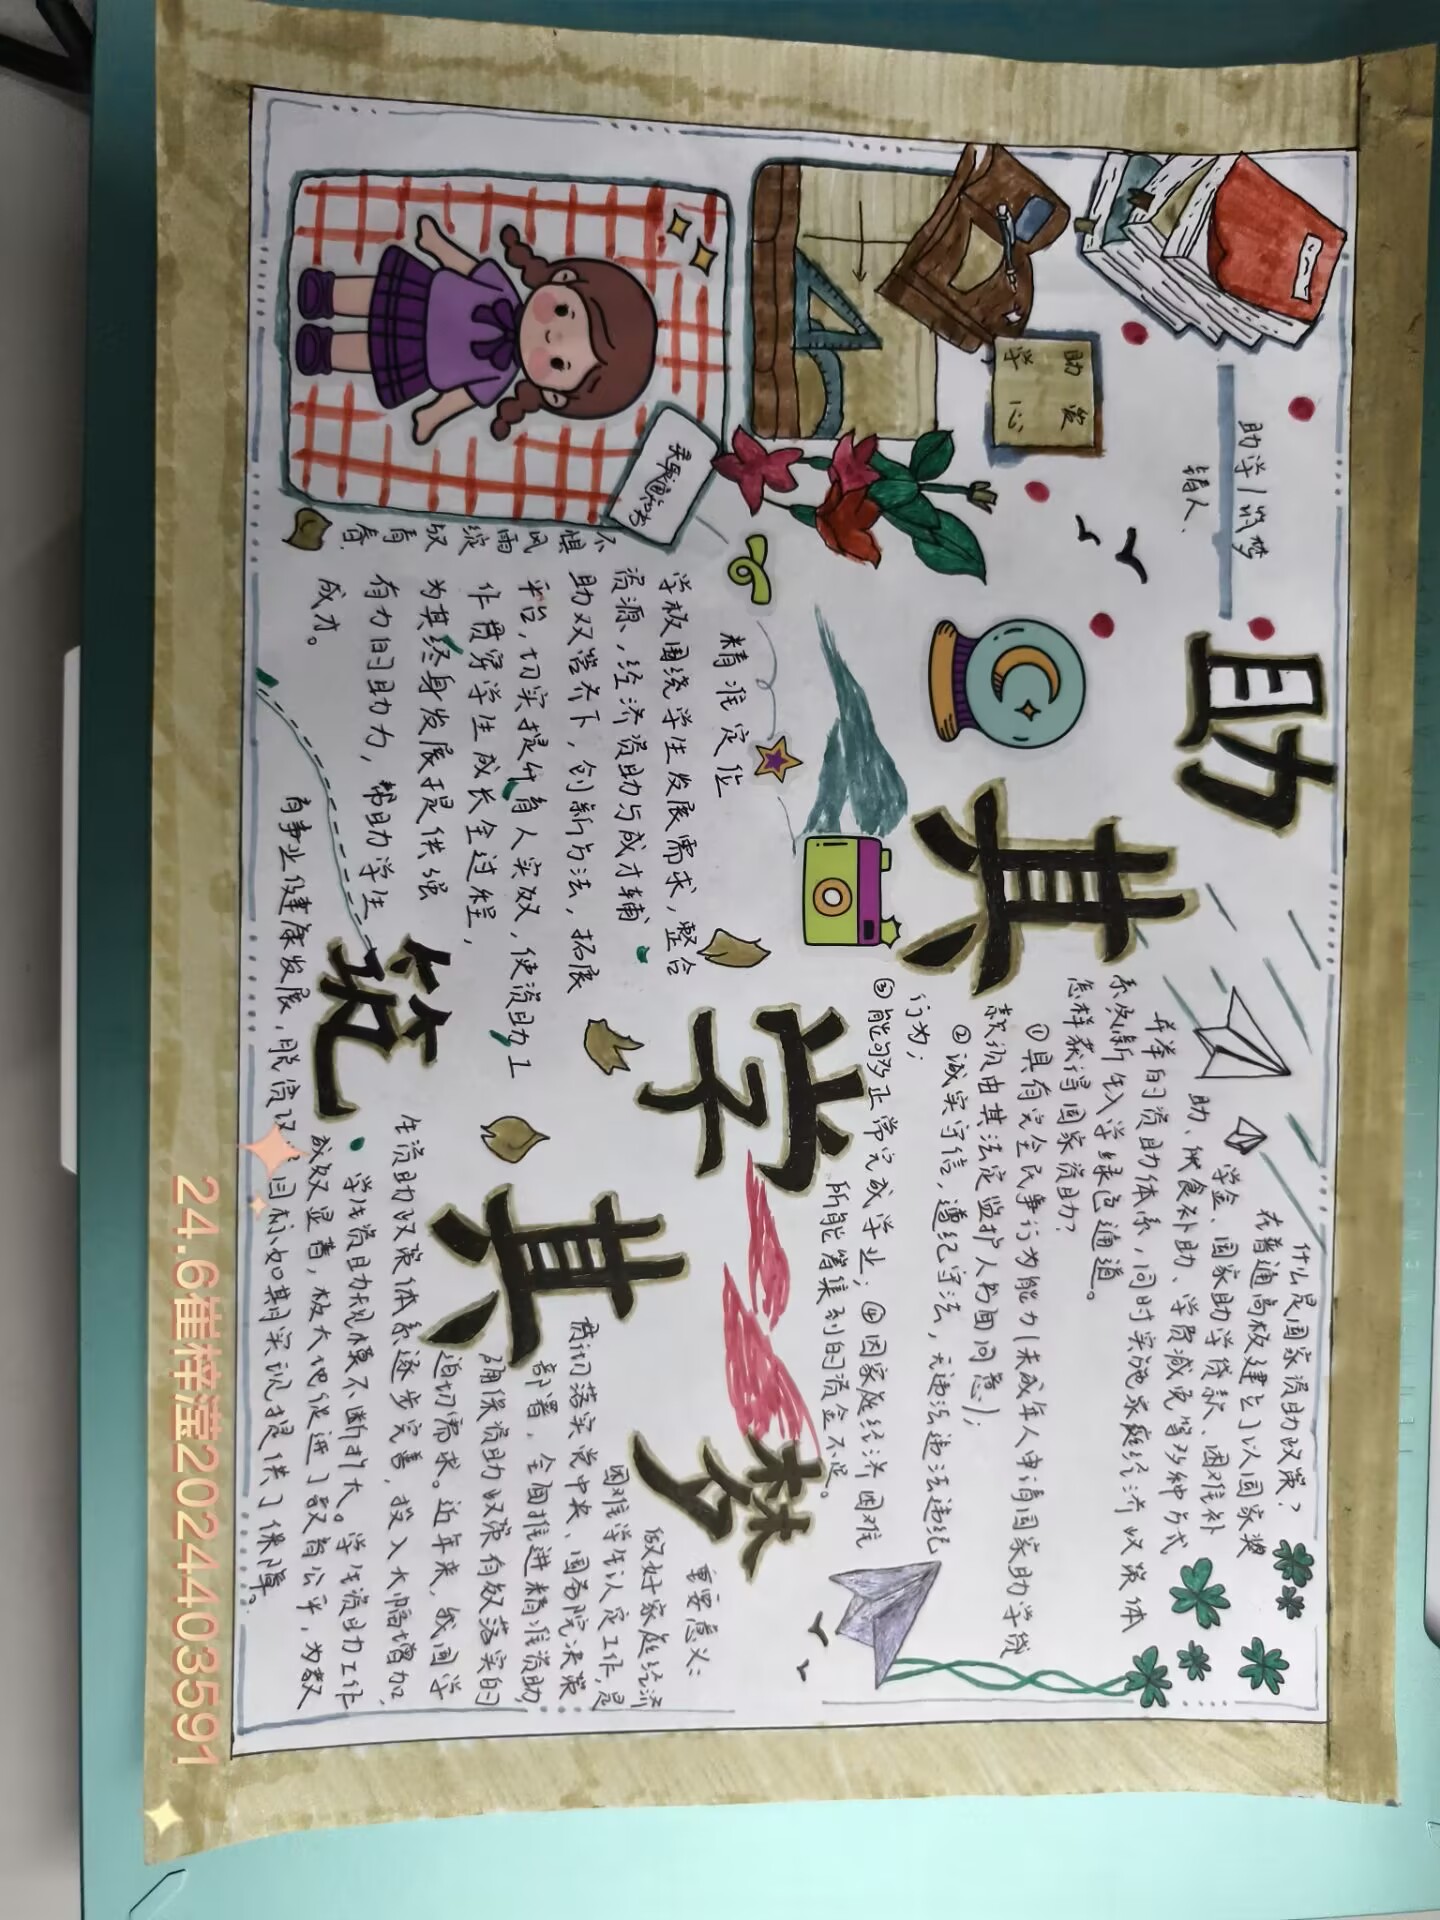 助学/筑梦
铸人、
助 爱
学 心
助其学
筑其梦
什么是国家资助政策?
在普通高校建立了以国家奖
学金、国家助学贷款、困难补
助、伙食补助、学费减免等多种方式
并举的资助体系,同时实施家庭经济政策体
系及新生入学绿色通道。
怎样获得国家资助?
①具有完全民事行为能力(未成年人申请国家助学贷
款须由其法定监护人书面同意);
②诚实守信,遵纪守法,无违法违纪
行为;
③能够正常完成学业;④因家庭经济困难
所能筹集到的资金不足。
精准定位
学校围绕学生发展需求,整合
资源、经济资助与成才辅
助双管齐下,创新方法,拓展
平台,切实提升育人实效,使资助工
作贯穿学生成长全过程,
为其终身发展提供强
有力的助力,帮助学生
成才。
不惧风雨绽放青春
重要意义:
做好家庭经济
困难学生认定工作,是
贯彻落实党中央、国务院决策
部署,全面推进精准资助,
确保资助政策有效落实的
迫切需求。近年来,我国学
生资助政策体系逐步完善,投入大幅增加,
学生资助规模不断扩大。学生资助工作
成效显著,极大地促进了教育公平,为教
育事业健康发展,脱贫攻坚目标如期实现提供了保障。
24.6崔梓滢202440403591